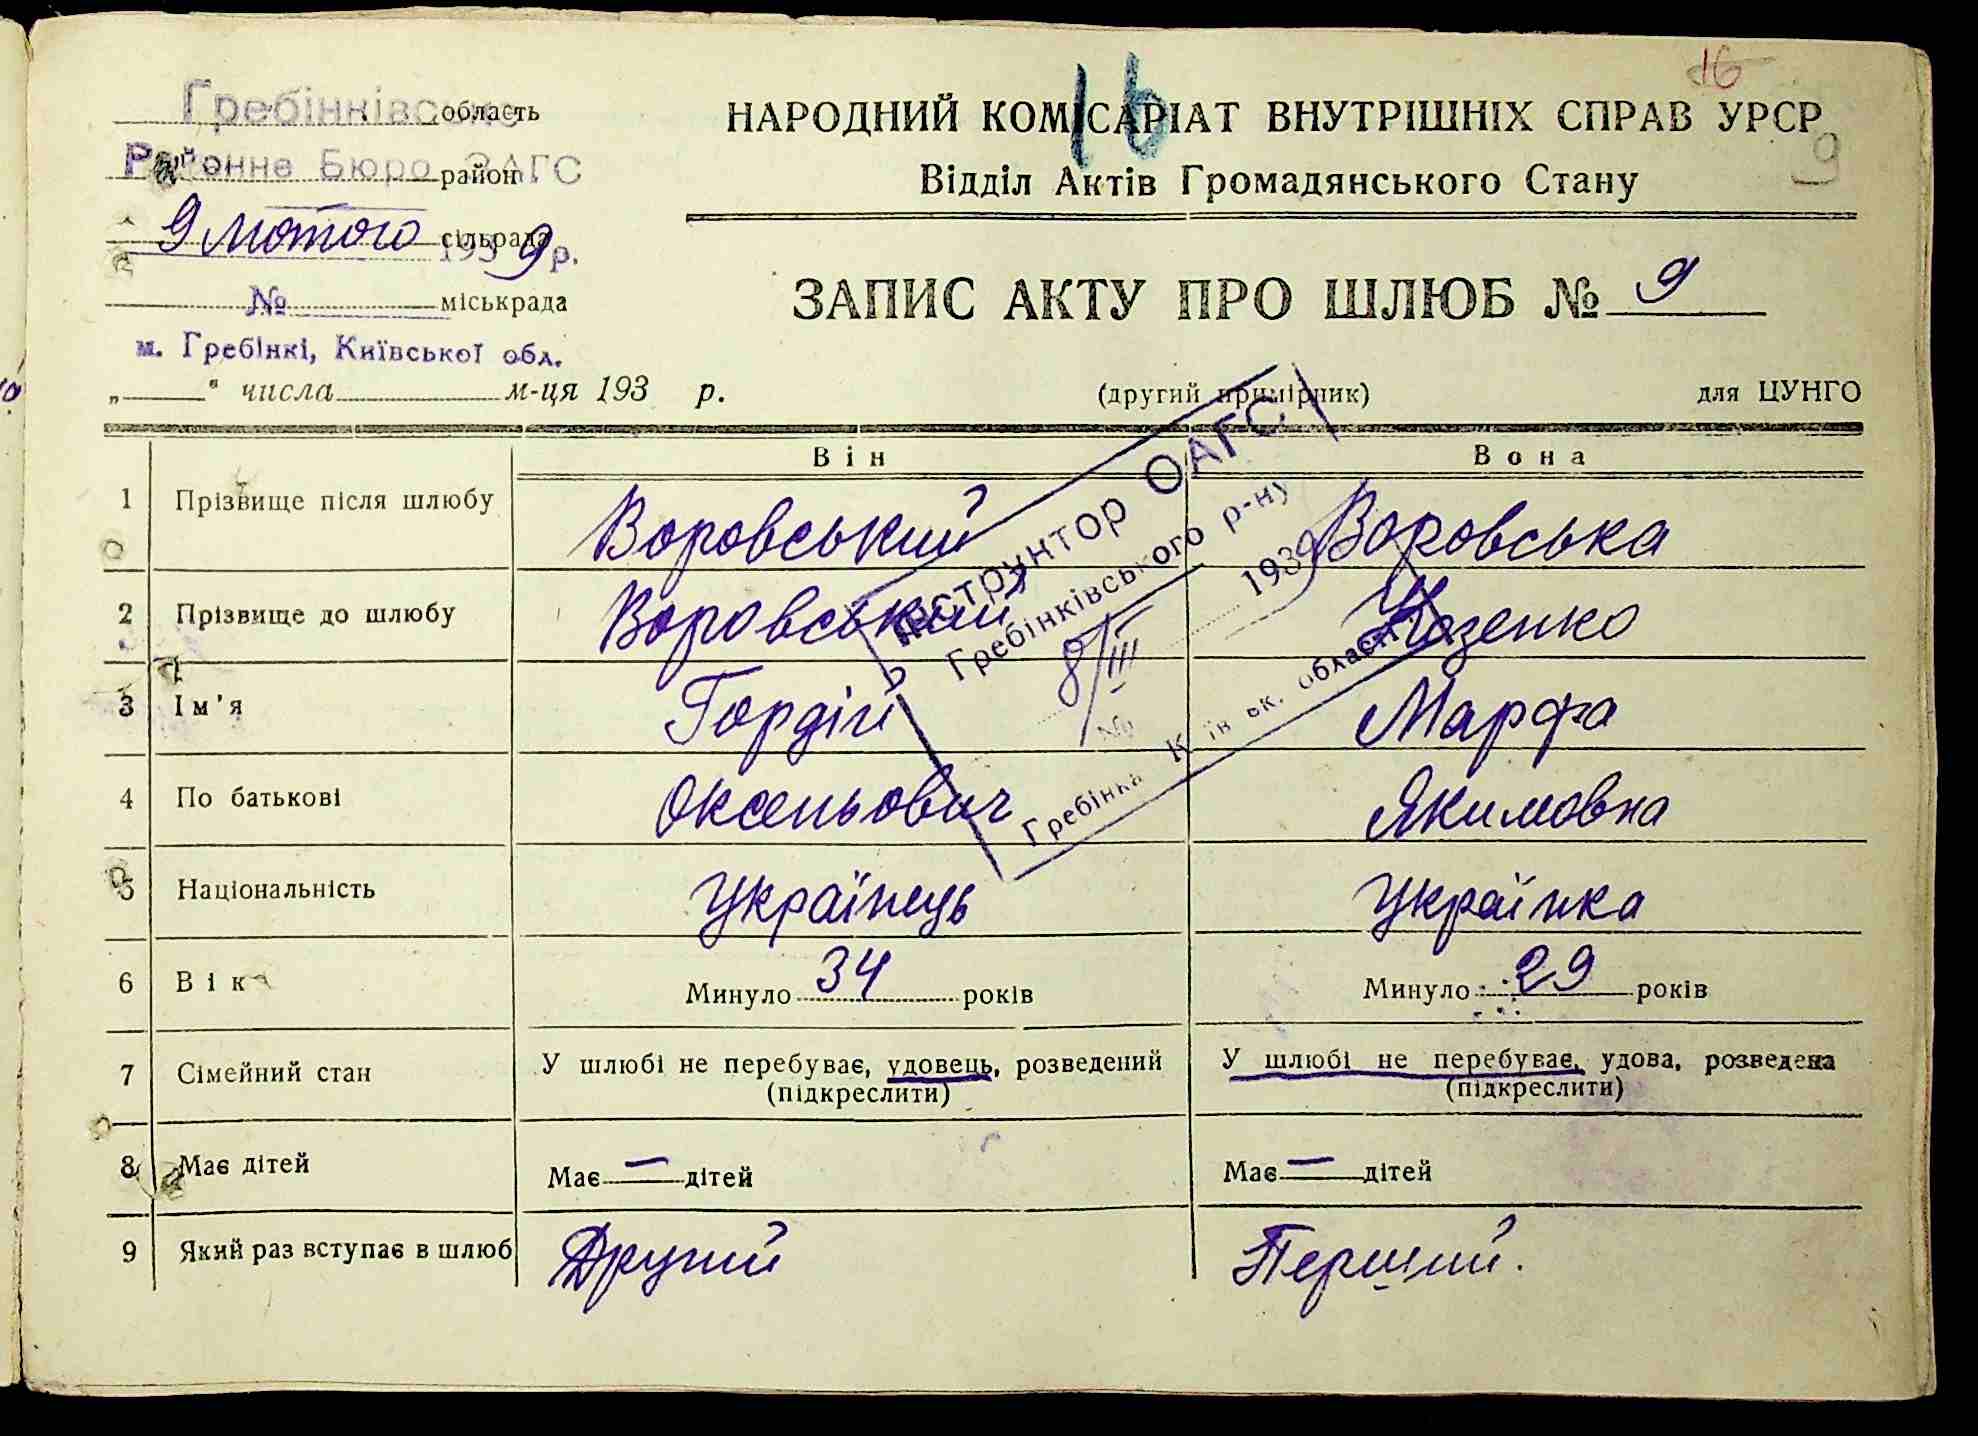 16
16
Гребінківське область
Районне Бюро ЗАГС район
НАРОДНИЙ КОМІСАРІАТ ВНУТРІШНІХ СПРАВ УРСР
9
Відділ Актів Громадянського Стану
9 лютого сільрада
1939 р.
№ міськрада
м. Гребінкі, Київської обл.
ЗАПИС АКТУ ПРО ШЛЮБ № 9
„ " числа м-ця 193 р.
(другий примірник)
для ЦУНГО
Він Вона
1 Прізвище після шлюбу Воровський Воровська
2 Прізвище до шлюбу Воровський Козенко
3 Ім'я Гордій Марфа
4 По батькові Оксеньович Якимовна
5 Національність Українець Українка
6 Вік Минуло 34 років Минуло 29 років
7 Сімейний стан У шлюбі не перебуває, удовець, розведений У шлюбі не перебуває, удова, розведена
(підкреслити) (підкреслити)
8 Має дітей Має — дітей Має — дітей
9 Який раз вступає в шлюб Другий Перший.
Інструктор ОАГС
Гребінківського р-ну
8/III 1939
№
Гребінка Київськ. області